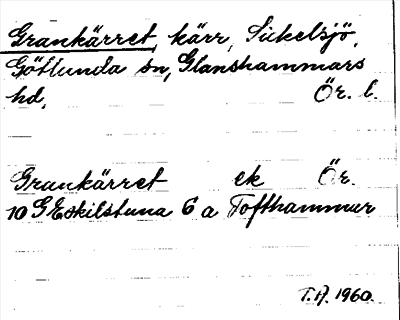 Grankärret, kärr, Sickelsjö,
Götlunda sn, Glanshammars
hd, Ör. l.
Grankärret ek Ör.
10 G Eskilstuna 6 a Tofthammar
T.A. 1960.